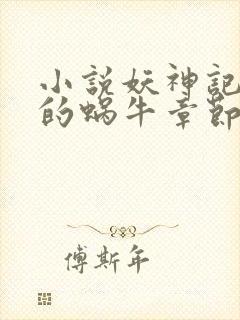 小説妖神記
的蝸牛章節
傅斯年